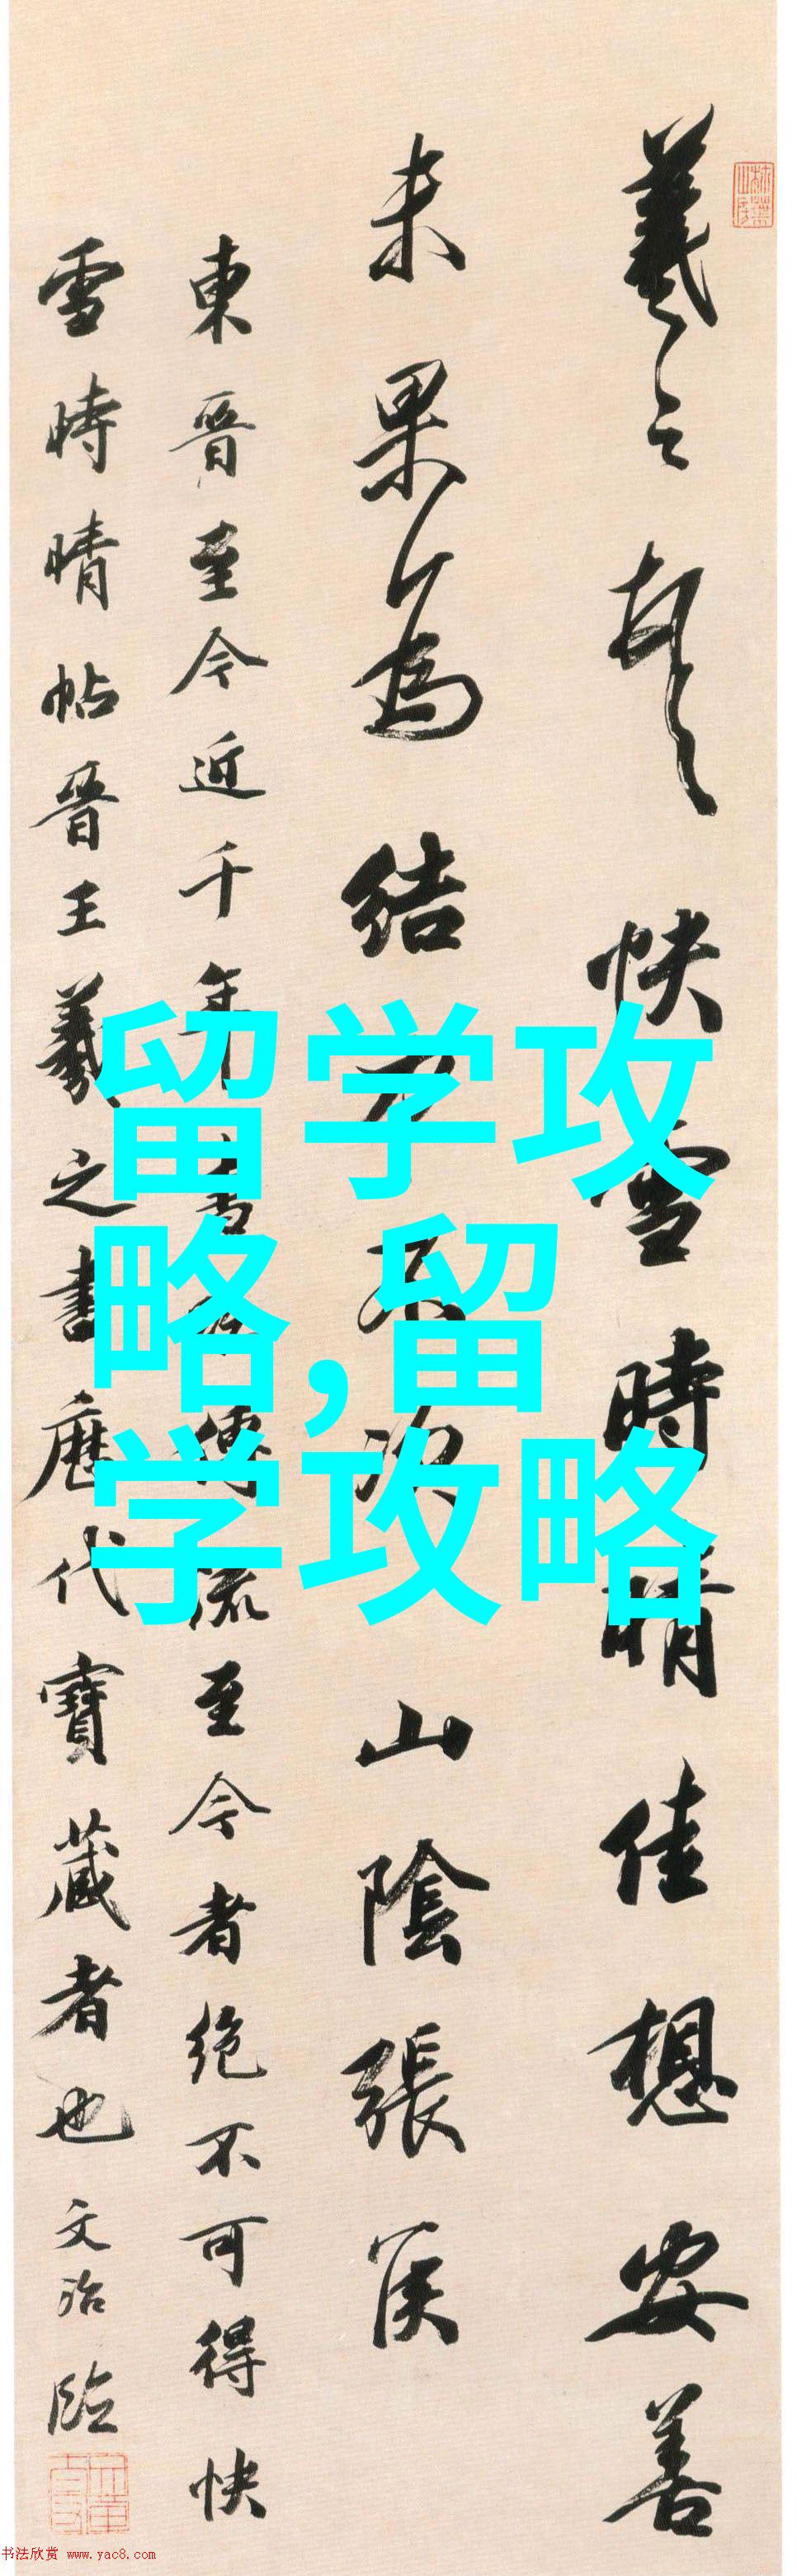 羲之頓首快雪時晴佳想安善
未果為結力不次山陰張侯
東晉至今近千年書傳流至今者絕不可得快
雪時晴帖晉王羲之書歷代寶藏者也文治臨
留学攻
略,留
学攻略
书法欣赏 www.yac8.com